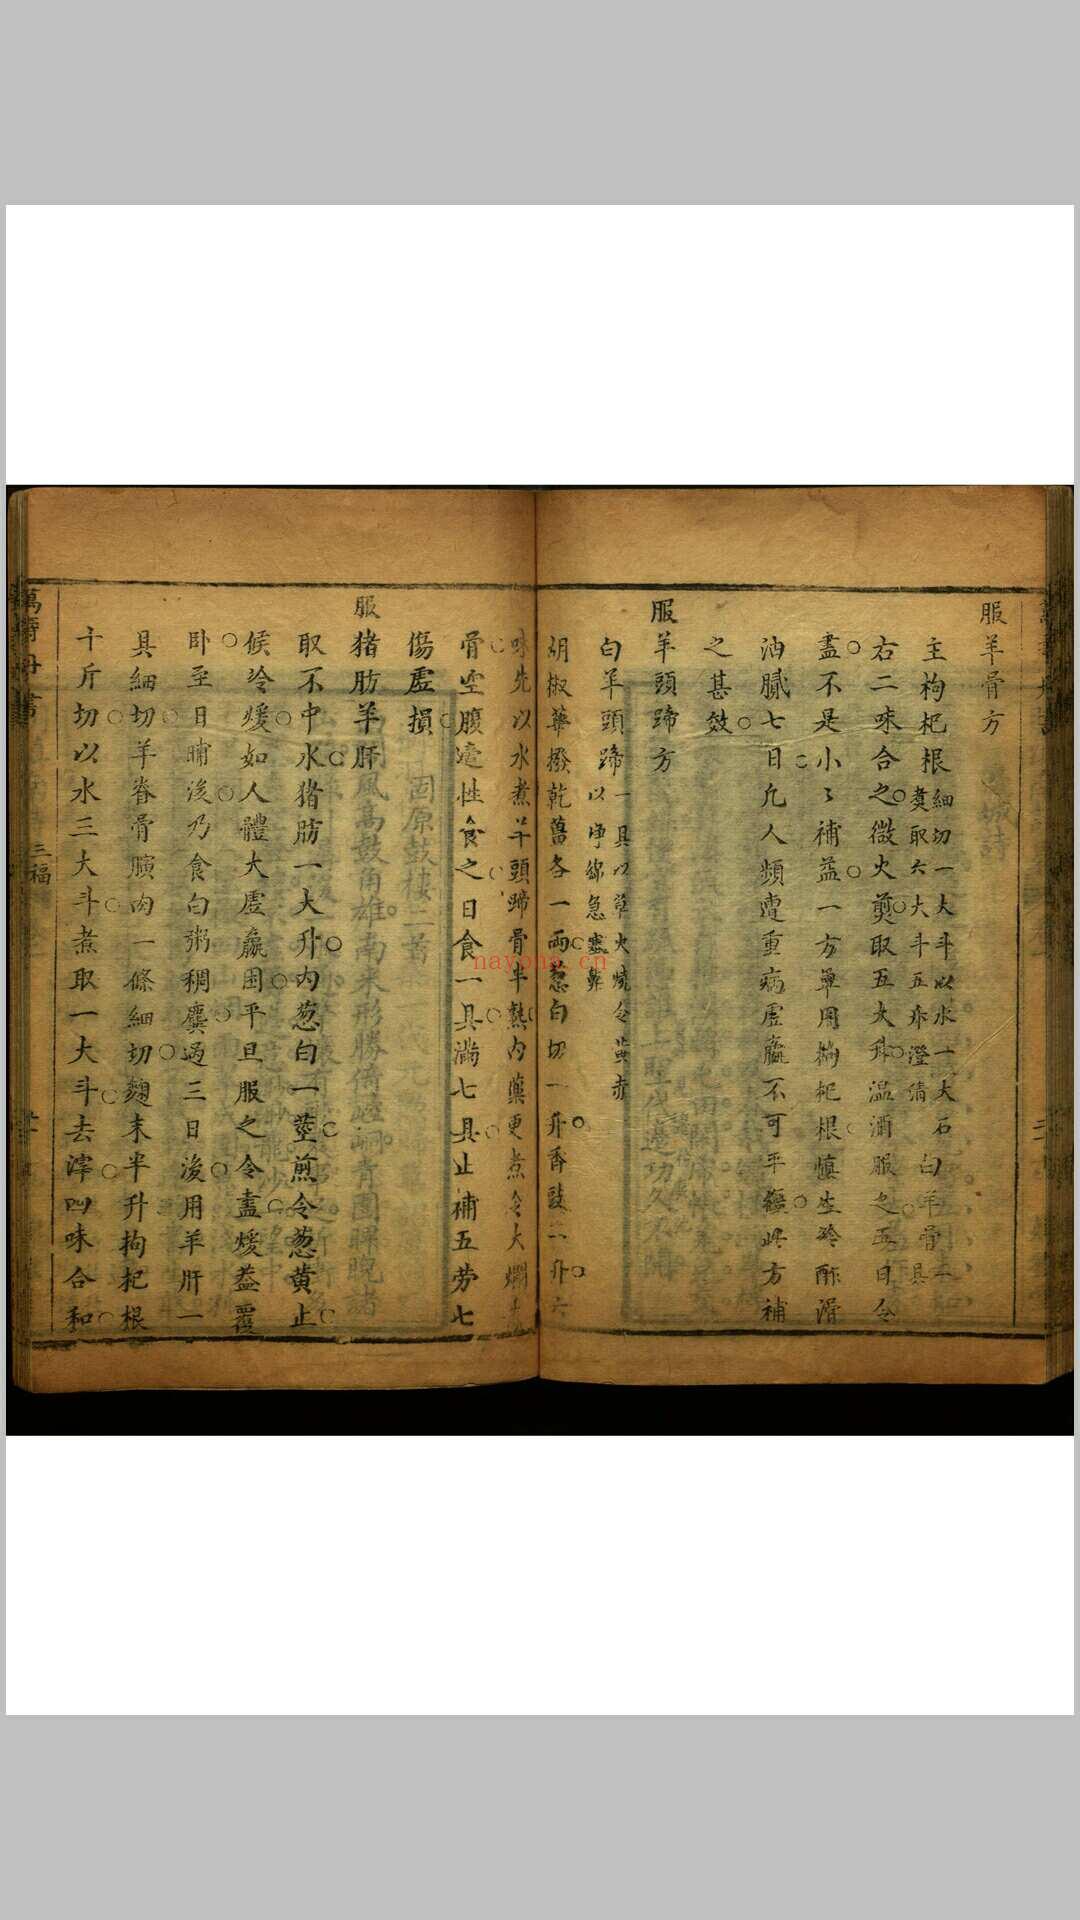 服羊骨方
主枸杞根細切一大斗以水一大石煑取六大斗五亦澄清白羊骨一具
右二味合之微火煎取五大升温酒服之五日令
盡不是小小補益一方單用枸杞根慎生冷酢滑
油膩七日凡人頻遭重病虛羸不可平復此方補
之甚效
服羊頭蹄方
白羊頭蹄一具以草火燒令黃赤以净綿急塞鼻
胡椒蓽撥乾薑各一兩葱白切一升香豉二升六
味先以水煮羊頭蹄骨半熟內藥更煮令大爛去
骨空腹適性食之日食一具滿七具止補五劳七
傷虛損
服猪肪羊肝
取不中水猪肪一大升內葱白一莖煎令葱黃止
候冷煖如人體大虛羸困平旦服之令盡煖葢覆
卧至日晡後乃食白粥稠糜過三日後用羊肝一
具細切羊脊骨膑肉一條細切麯末半升拘杞根
十斤切以水三大斗煮取一大斗去滓四味合和
萬壽丹書
三福
nayona.cn